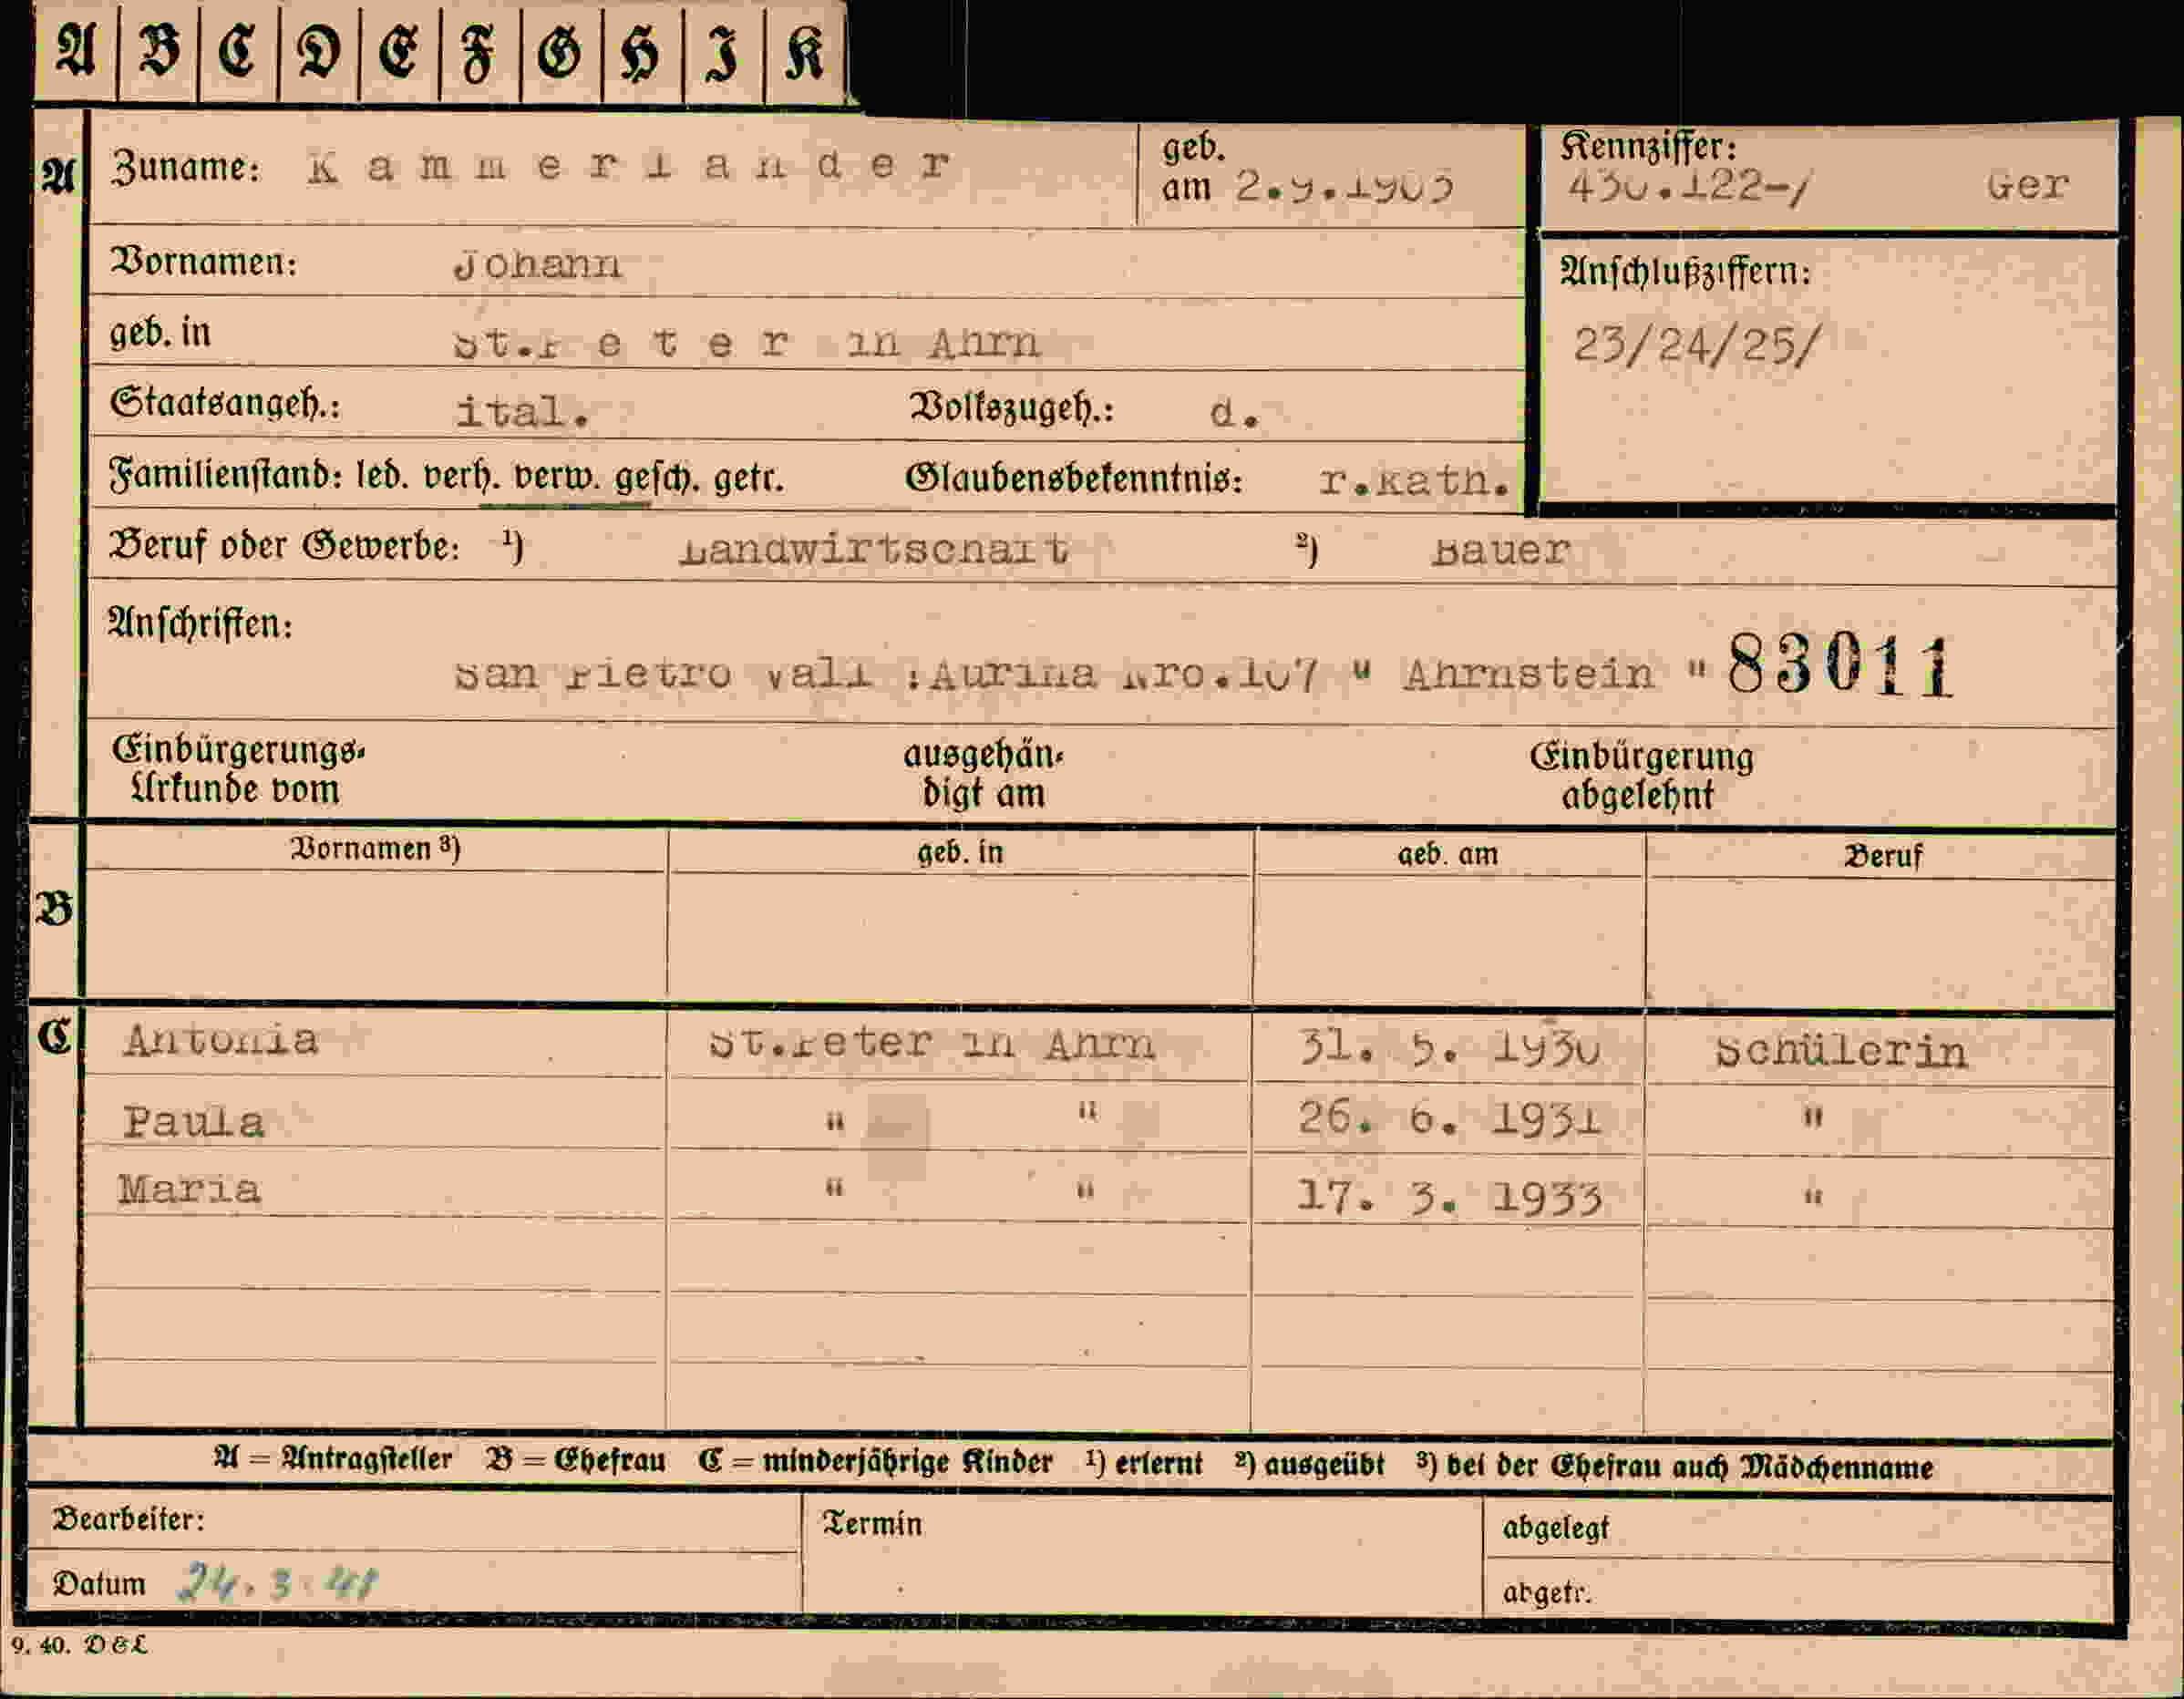 A B C D E F G H I K
A Zuname: Kammerlander geb. am 2.9.1903 Kennziffer: 430.122-/ Ger
Vornamen: Johann Anschlußziffern:
geb. in St.Peter in Ahrn 23/24/25/
Staatsangeh.: ital. Volkszugeh.: d.
Familienstand: led. verh. verw. gesch. getr. Glaubensbekenntnis: r.kath.
Beruf oder Gewerbe: ¹) Landwirtschaft ²) Bauer
Anschriften:
San Pietro Vall :Aurina Nro.107 " Ahrnstein " 83011
Einbürgerungs- ausgehän- Einbürgerung
Urkunde vom digt am abgelehnt
Vornamen ³) geb. in geb. am Beruf
B
C Antonia St.Peter in Ahrn 31. 5. 1930 Schülerin
Paula " " 26. 6. 1931 "
Maria " " 17. 3. 1933 "
A = Antragsteller B = Ehefrau C = minderjährige Kinder ¹) erlernt ²) ausgeübt ³) bei der Ehefrau auch Mädchenname
Bearbeiter: Termin abgelegt
Datum 24.3.41 abgetr.
9. 40. D & L